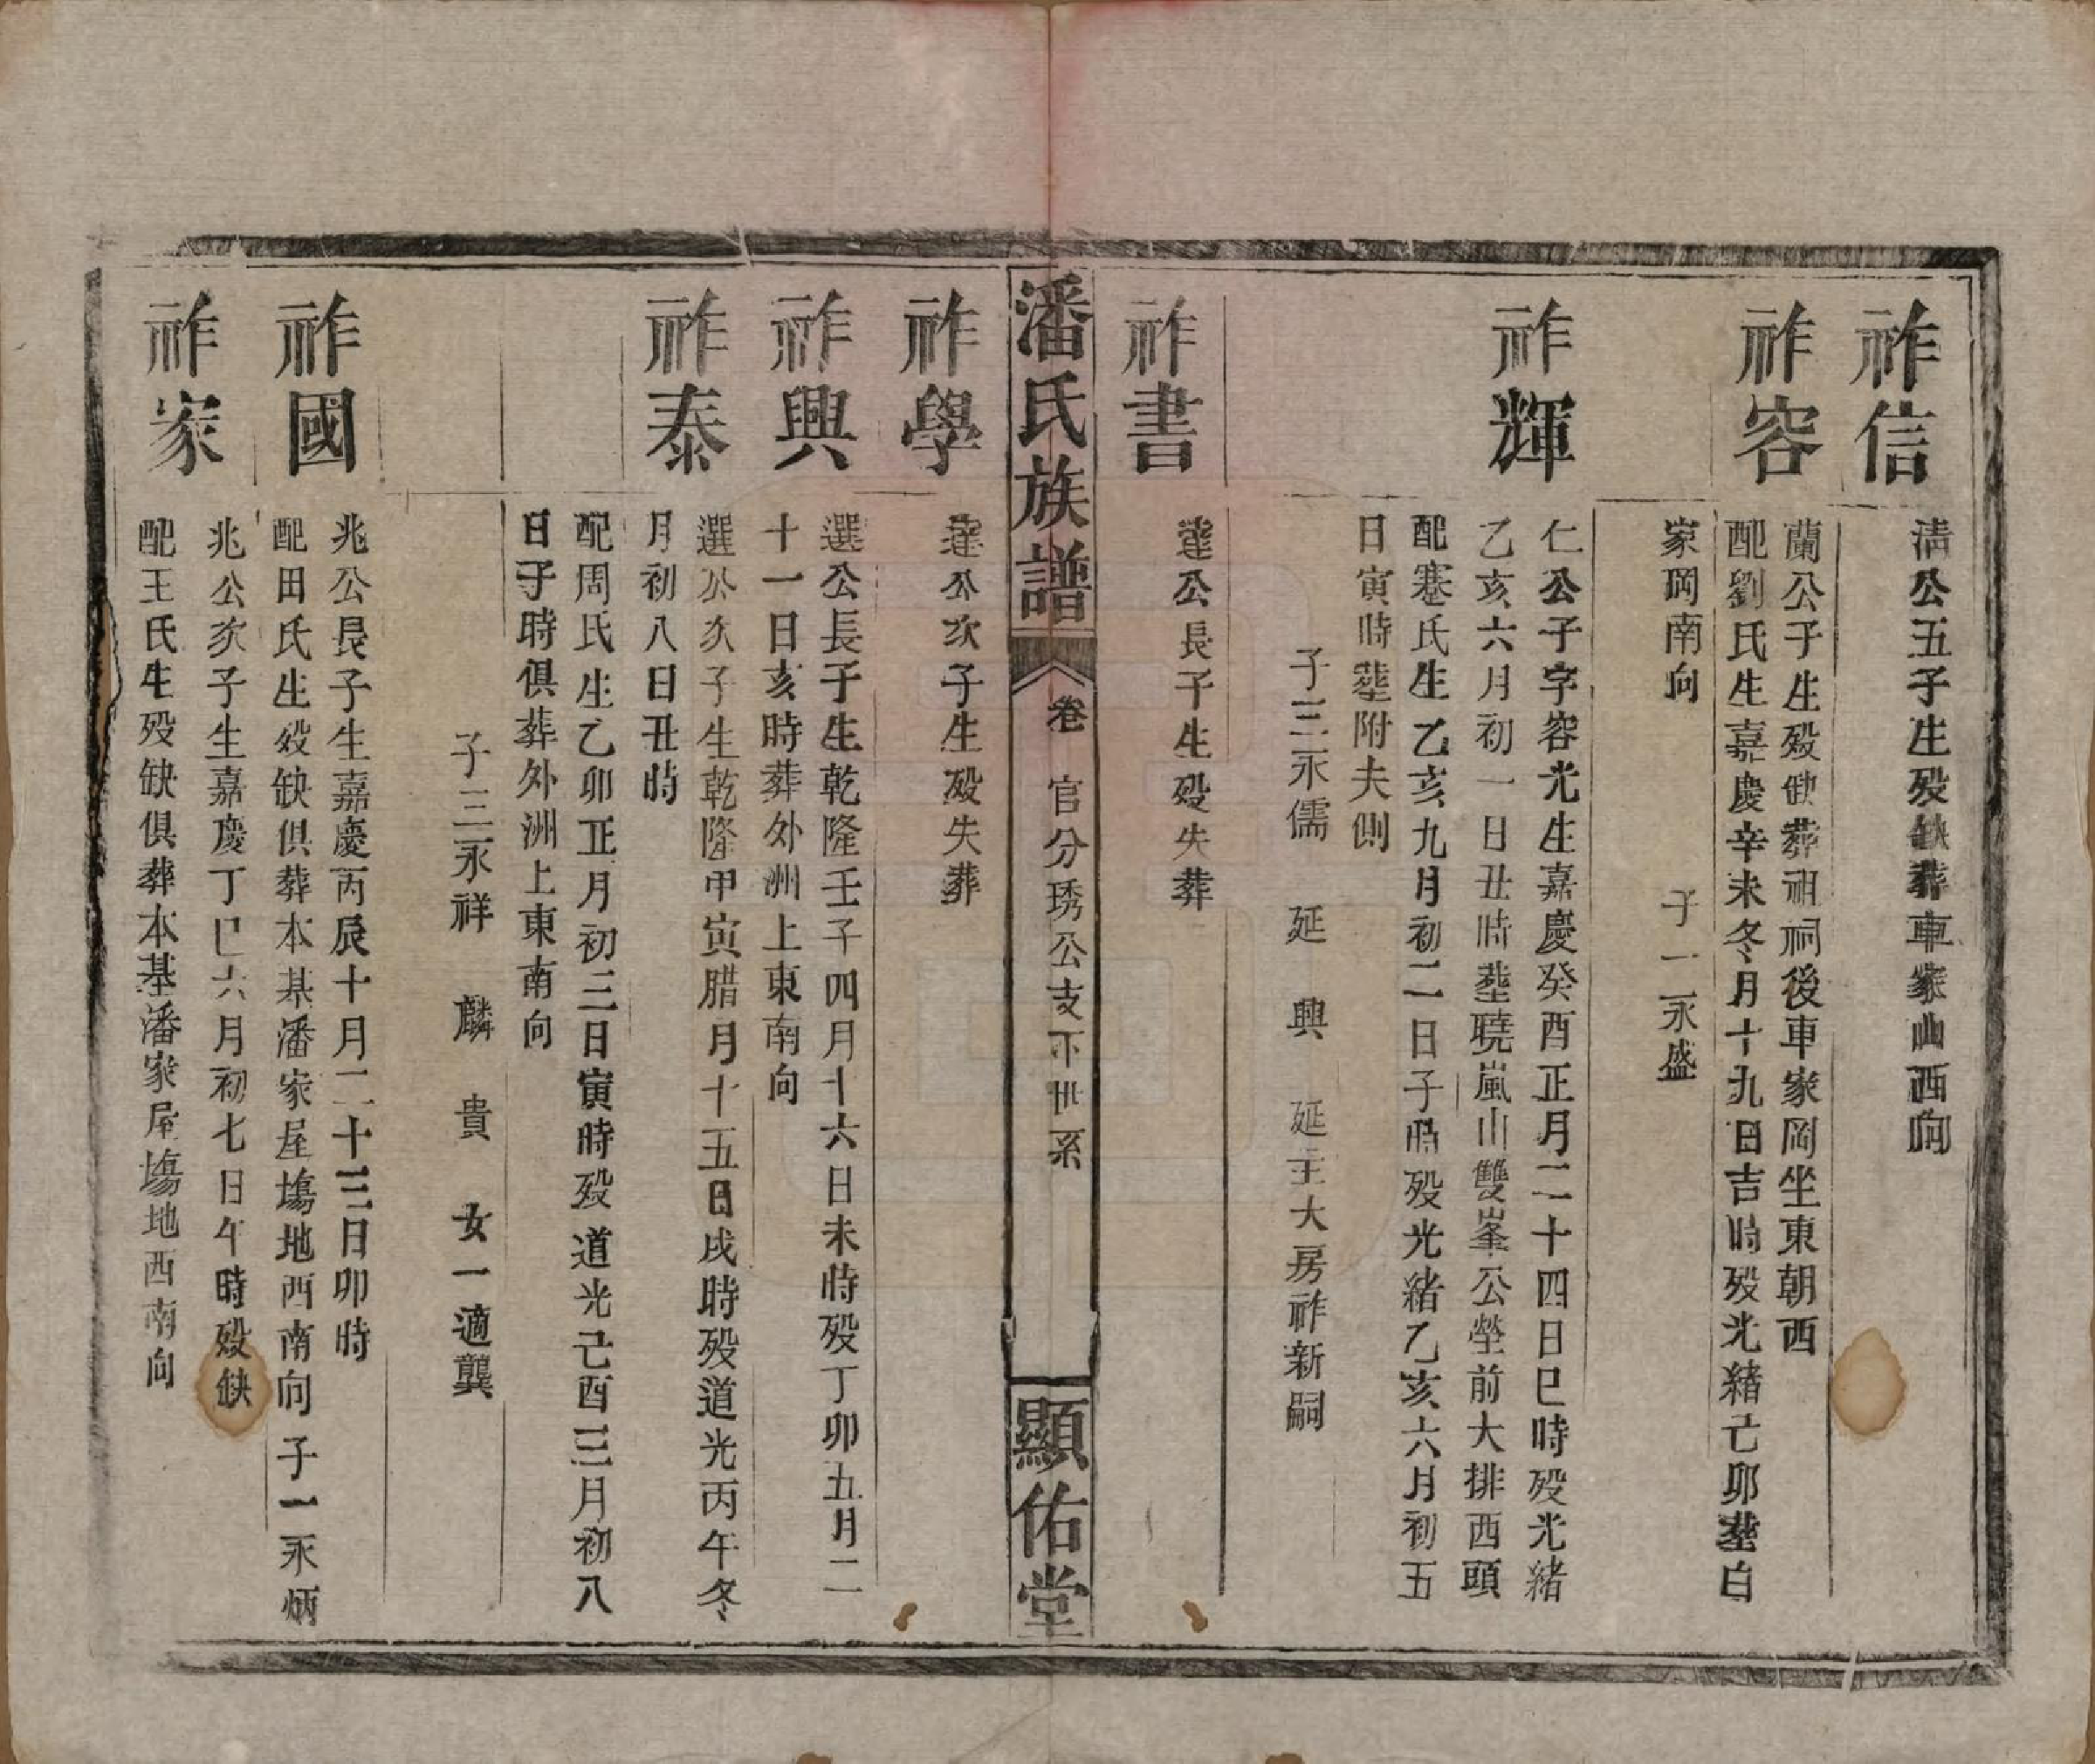 祚信
清公五子生殁缺葬車家山西向
祚容
蘭公子生殁缺葬祖祠後車家岡坐東朝西
配劉氏生嘉慶辛未冬月十九日吉時殁光緒己卯塟白
家岡南向　子一永盛
祚輝
仁公子字容光生嘉慶癸酉正月二十四日巳時殁光緒
乙亥六月初一日丑時塟曉嵐山雙峯公塋前大排西頭
配蹇氏生乙亥九月初二日子時殁光緒乙亥六月初五
日寅時塟附夫側
子三永儒　延興　延主大房祚新嗣
祚書
達公長子生殁失葬
潘氏族譜　卷　官分琇公支下世系　顯佑堂
祚學
達公次子生殁失葬
祚興
選公長子生乾隆壬子四月十六日未時殁丁卯五月二
十一日亥時葬外洲上東南向
祚泰
選公次子生乾隆甲寅腊月十五日戌時殁道光丙午冬
月初八日丑時
配周氏生乙卯正月初三日寅時殁道光己酉三月初八
日子時俱葬外洲上東南向
子三永祥　麟　貴　女一適龔
祚國
兆公長子生嘉慶丙辰十月二十三日卯時
配田氏生殁缺俱葬本基潘家屋塲地西南向　子一永炳
祚家
兆公次子生嘉慶丁巳六月初七日午時殁缺
配王氏生殁缺俱葬本基潘家屋塲地西南向